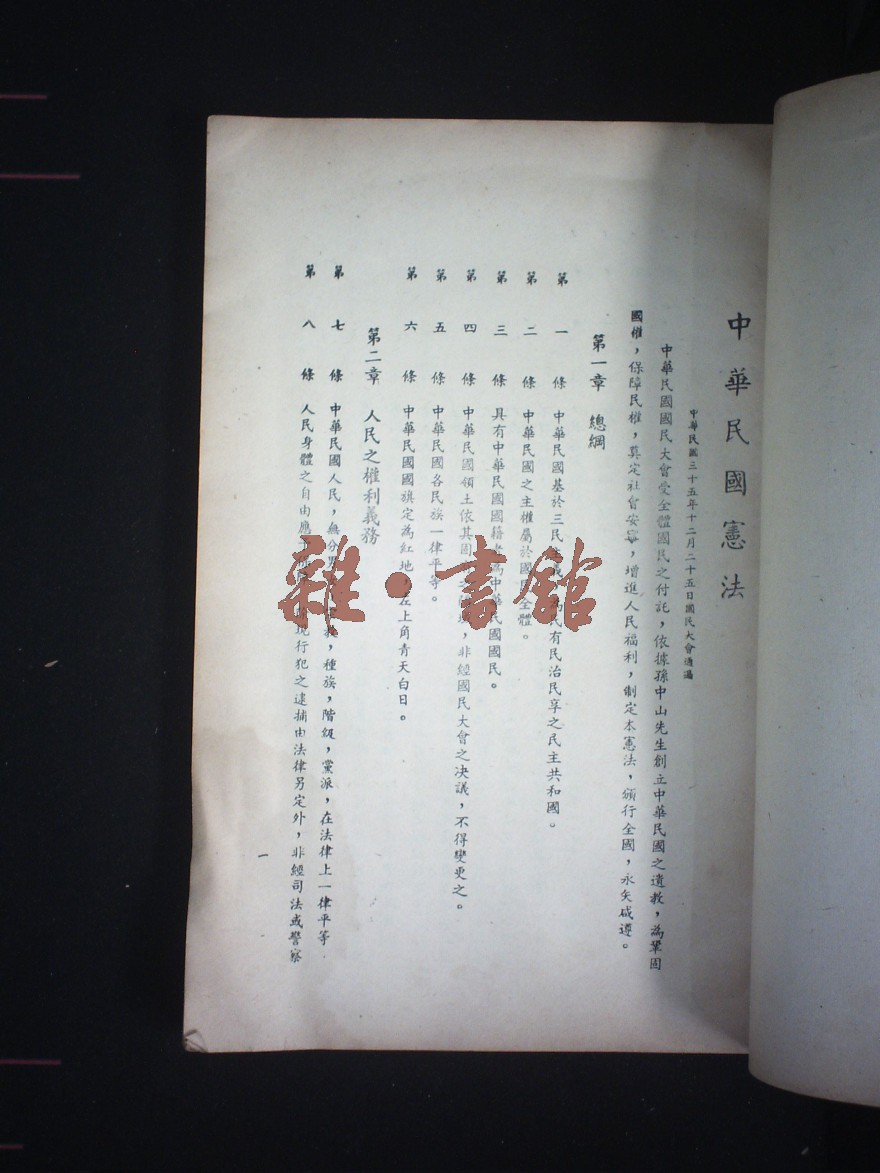 中華民國憲法
中華民國三十五年十二月二十五日國民大會通過
中華民國國民大會受全體國民之付託，依據孫中山先生創立中華民國之遺教，為鞏固
國權，保障民權，奠定社會安寧，增進人民福利，制定本憲法，頒行全國，永矢咸遵。
第一章 總綱
第一條 中華民國基於三民主義，為民有民治民享之民主共和國。
第二條 中華民國之主權屬於國民全體。
第三條 具有中華民國國籍者為中華民國國民。
第四條 中華民國領土依其固 ，非經國民大會之決議，不得變更之。
第五條 中華民國各民族一律平等。
第六條 中華民國國旗定為紅地 左上角青天白日。
第二章 人民之權利義務
第七條 中華民國人民，無分男 ，種族，階級，黨派，在法律上一律平等
第八條 人民身體之自由應予 現行犯之逮捕由法律另定外，非經司法或警察
一
雜·書館